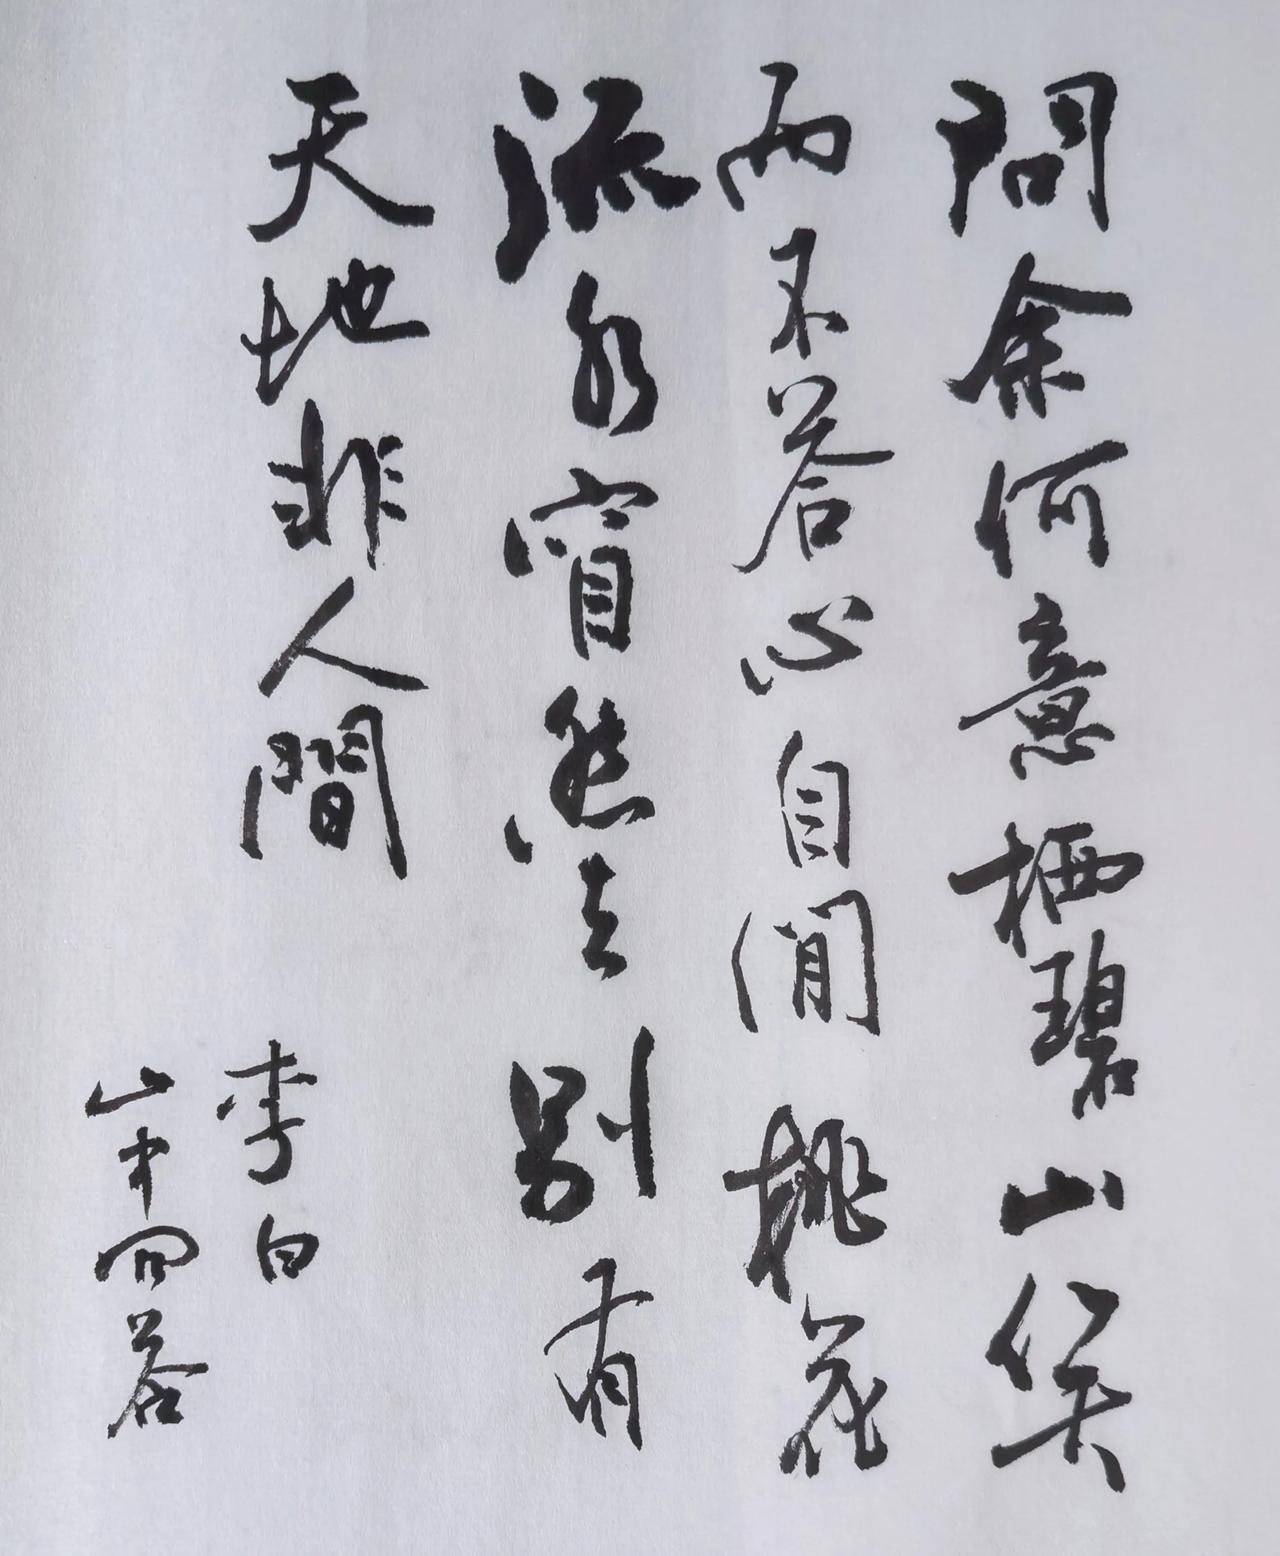 問余何意栖碧山笑
而不答心自閒桃花
流水窅然去別有
天地非人間
李白
山中問答